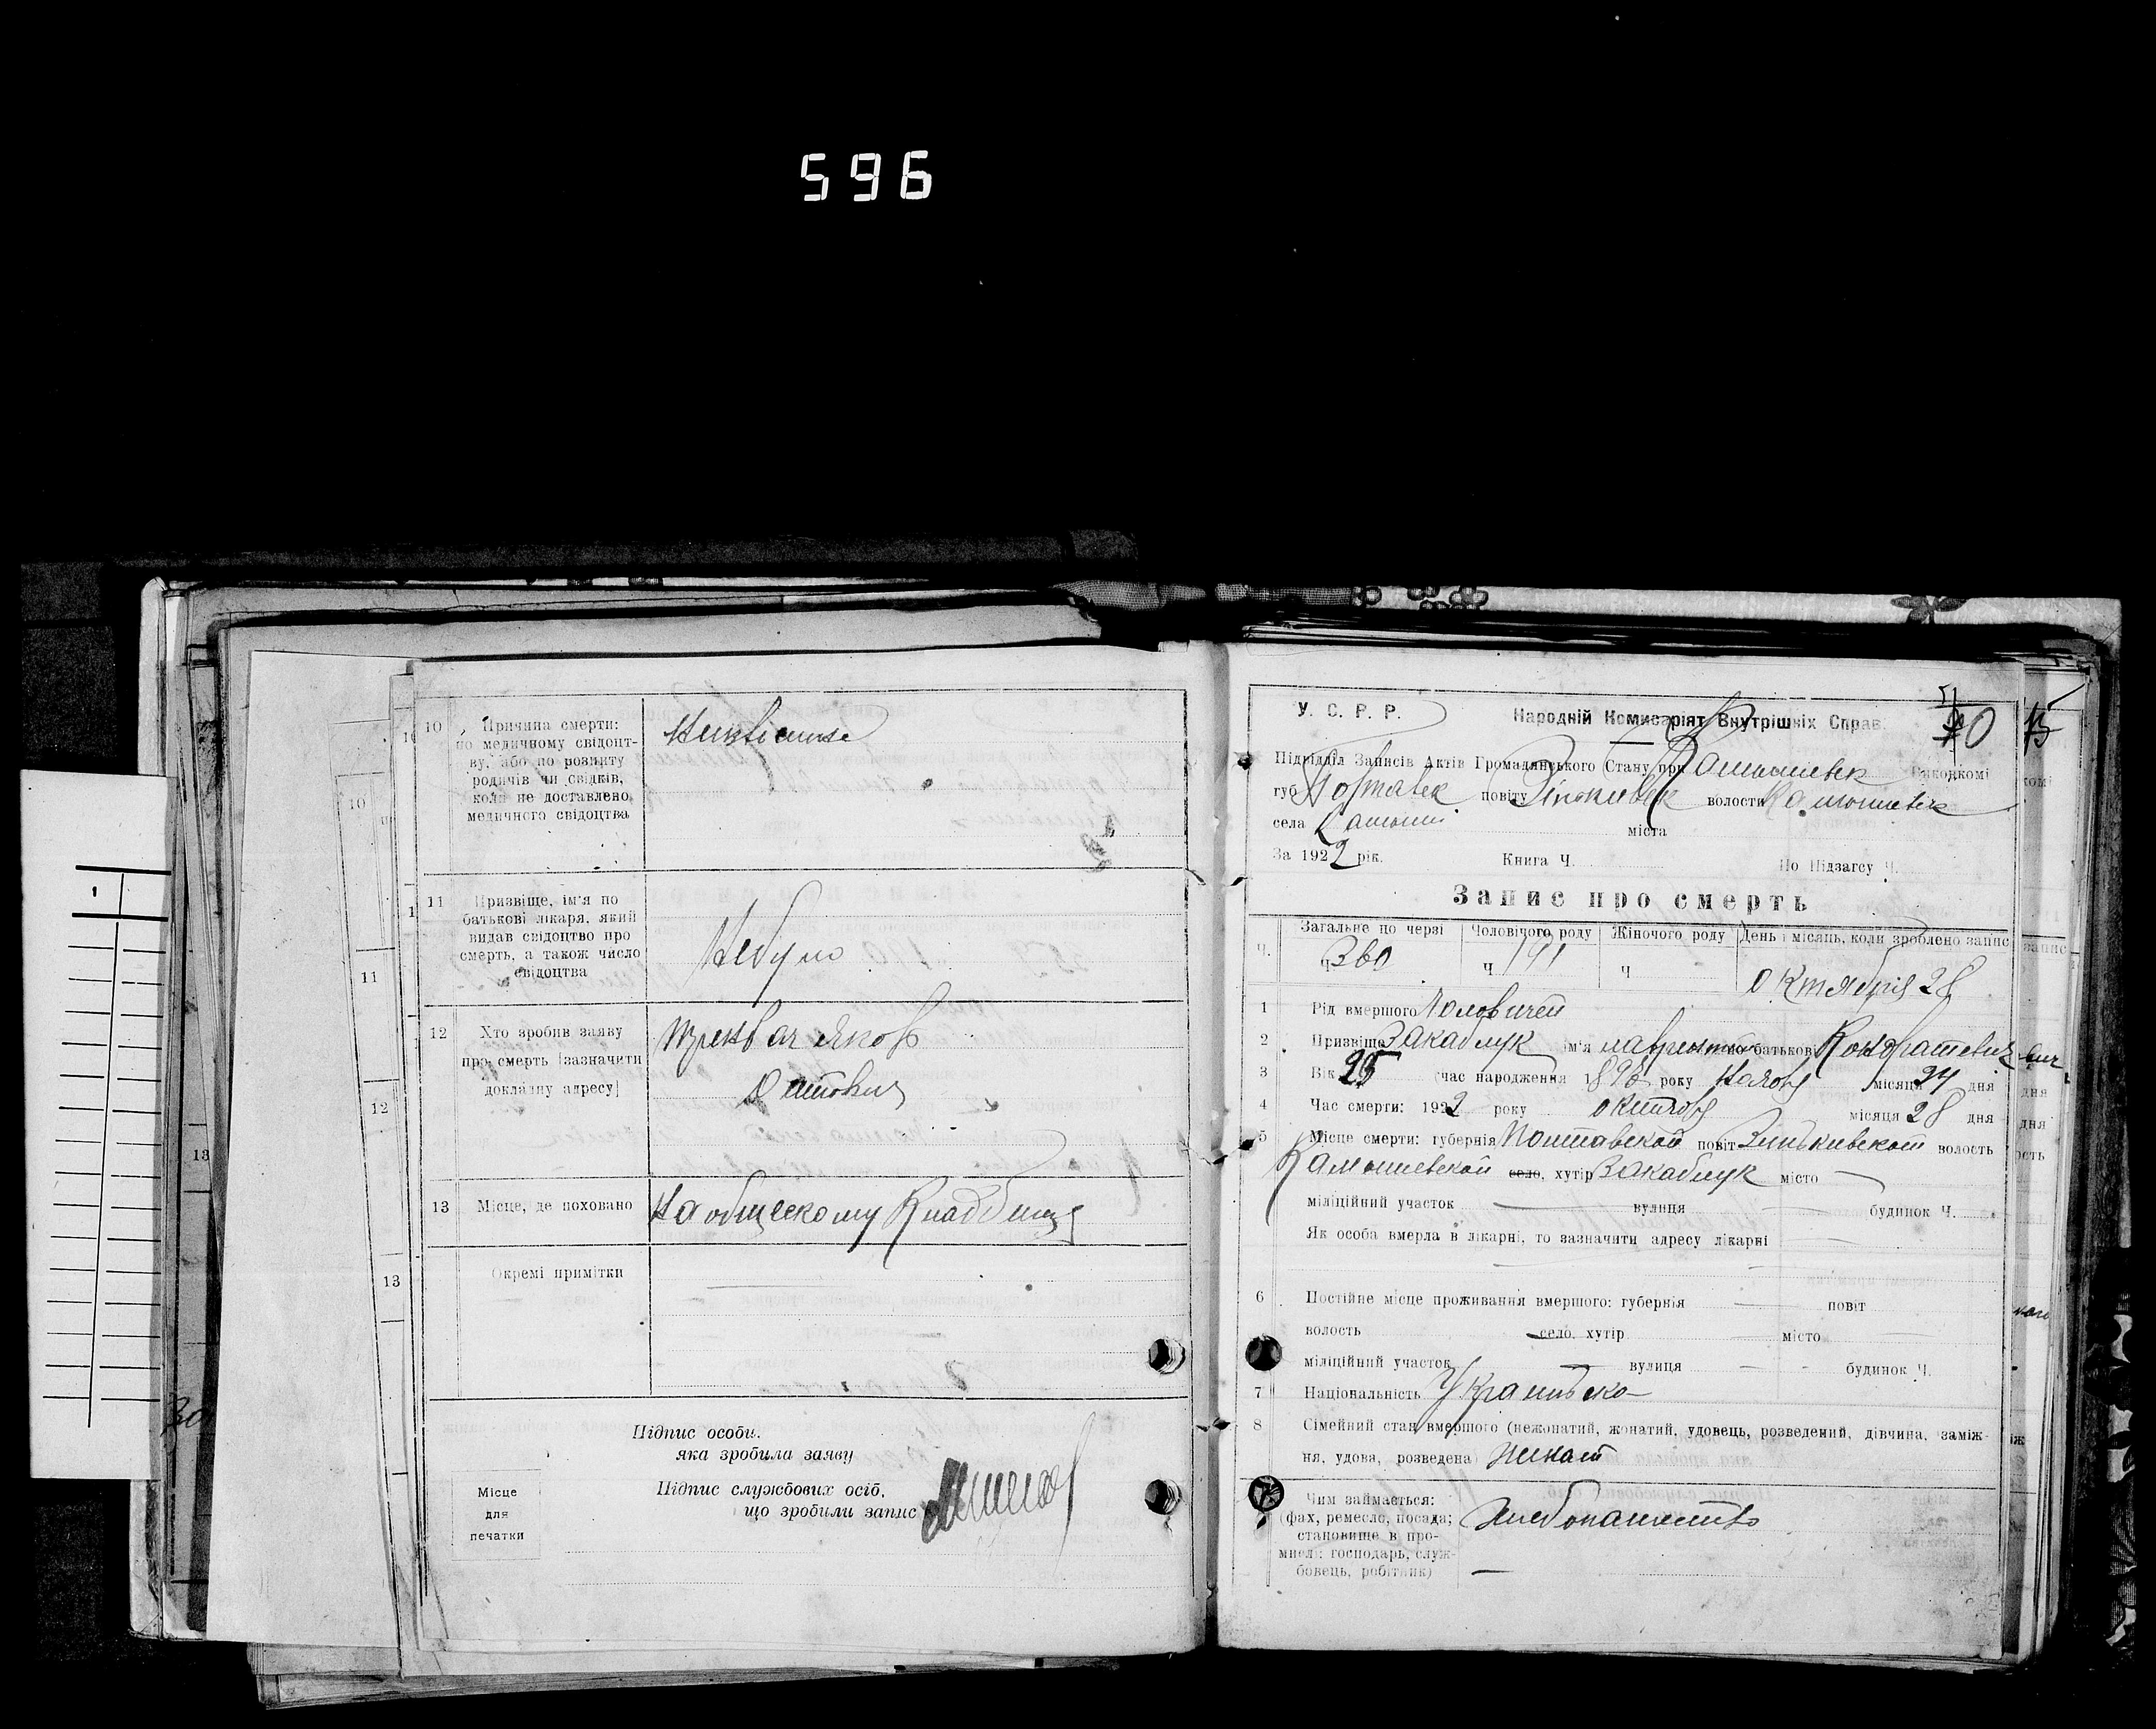 596
10 Причина смерти:
по медичному свідоцт-
ву, або по розпиту
родичів чи свідків,
коли не доставлено
медичного свідоцтва
11 Призвіще, ім'я по
батькові лікаря, який
видав свідоцтво про
смерть, а також число
свідоцтва
Небуло
12 Хто зробив заяву
про смерть (зазначити
докладну адресу)
Яков
13 Місце, де поховано
На общескому Кладбищу
Окремі примітки
Підпис особи,
яка зробила заяву
Підпис службових осіб,
що зробили запис
Місце
для
печатки
10
11
12
13
13
У. С. Р. Р.
Народній Комисаріят Внутрішніх Справ.
Підвідділ Записів Актів Громадянського Стану при Камышевск Виконкомі
губ Полтавск повіту Зіньківск волости Камышевск
села Камыши міста
За 1922 рік. Книга Ч. По Підзагсу Ч.
Запис про смерть
Ч. Загальне по черзі Чоловічого роду Жіночого роду День і місяць, коли зроблено запис
Ч 360 Ч 191 Ч Октября 28
1 Рід вмершого Чоловичей
2 Призвіще Закаблук ім'я Лаврентий по батькові Кондратевич
3 Вік 25 (час народження 189 року місяця 24 дня
4 Час смерти: 1922 року октябр місяця 28 дня
5 Місце смерти: губернія Полтавской повіт Зинькивском волость
Камышевской село, хутір Закаблук місто
міліційний участок вулиця будинок Ч.
Як особа вмерла в лікарні, то зазначити адресу лікарні
6 Постійне місце проживання вмершого: губернія повіт
волость село, хутір місто
міліційний участок вулиця будинок Ч.
7 Національність Украинско
8 Сімейний стан вмершого (нежонатий, жонатий, удовець, розведений, дівчина, заміж-
ня, удова, розведена) жинат
Чим займається:
(фах, ремесло, посада;
становище в про-
мислі: господарь, служ-
бовець, робітник)
Хлебопашество